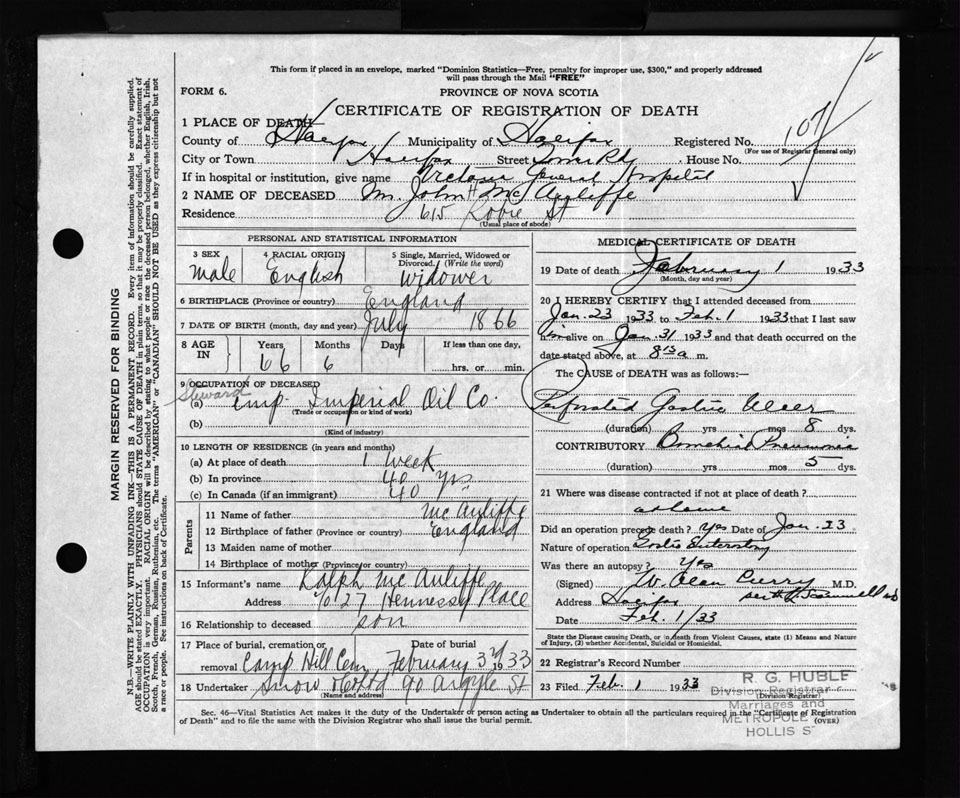 This form if placed in an envelope, marked "Dominion Statistics—Free, penalty for improper use, $300," and properly addressed
will pass through the Mail "FREE"
FORM 6.
PROVINCE OF NOVA SCOTIA
CERTIFICATE OF REGISTRATION OF DEATH
1 PLACE OF DEATH
County of Halifax Municipality of Halifax Registered No. 107
(For use of Registrar General only)
City or Town Halifax Street House No.
If in hospital or institution, give name Victoria General Hospital
2 NAME OF DECEASED John H McAuliffe
Residence 615 Robie St
(Usual place of abode)
MARGIN RESERVED FOR BINDING
N.B.—WRITE PLAINLY WITH UNFADING INK—THIS IS A PERMANENT RECORD. Every item of information should be carefully supplied.
AGE should be stated EXACTLY. PHYSICIANS should STATE CAUSE OF DEATH in plain terms, so that it may be properly classified. Exact statement of
OCCUPATION is very important. RACIAL ORIGIN will be described by stating to what people or race the deceased person belonged, whether English, Irish,
Scotch, French, German, Russian, Ruthenian, etc. The terms "AMERICAN" or "CANADIAN" SHOULD NOT BE USED as they express citizenship but not
a race or people. See instructions on back of Certificate.
PERSONAL AND STATISTICAL INFORMATION
3 SEX
Male
4 RACIAL ORIGIN
English
5 Single, Married, Widowed or
Divorced. (Write the word)
Widower
6 BIRTHPLACE (Province or country) England
7 DATE OF BIRTH (month, day and year) July 1866
8 AGE IN Years Months Days If less than one day,
66 6 hrs. or min.
9 OCCUPATION OF DECEASED
Steward
(a) Emp. Imperial Oil Co.
(Trade or occupation or kind of work)
(b)
(Kind of industry)
10 LENGTH OF RESIDENCE (in years and months)
(a) At place of death 1 week
(b) In province 40 yrs
(c) In Canada (if an immigrant) 40
Parents
11 Name of father McAuliffe
12 Birthplace of father (Province or country) England
13 Maiden name of mother
14 Birthplace of mother (Province or country)
15 Informant's name Ralph McAuliffe
Address Hennessy Place
16 Relationship to deceased son
17 Place of burial, cremation or removal Camp Hill Cem Date of burial February 3rd 1933
18 Undertaker Snow & Co Ltd 90 Argyle St
(Name and address)
MEDICAL CERTIFICATE OF DEATH
19 Date of death February 1 1933
(Month, day and year)
20 I HEREBY CERTIFY that I attended deceased from
Jan. 23 1933 to Feb. 1 1933 that I last saw
him alive on Jan 31 1933 and that death occurred on the
date stated above, at 8 a m.
The CAUSE OF DEATH was as follows:—
Perforated Gastric Ulcer
(duration) yrs mos 8 dys.
CONTRIBUTORY Bronchial Pneumonia
(duration) yrs mos 5 dys.
21 Where was disease contracted if not at place of death?
at home
Did an operation precede death? Yes Date of Jan. 23
Nature of operation
Was there an autopsy? Yes
(Signed) W. Alan Curry M.D.
Address Halifax
Date Feb. 1/33
State the Disease causing Death, or in death from Violent Causes, state (1) Means and Nature
of Injury, (2) whether Accidental, Suicidal or Homicidal.
22 Registrar's Record Number
23 Filed Feb. 1 1933
(Division Registrar)
R. G. HUBLE
Division Registrar
Marriages and
METROPOLE
HOLLIS S
Sec. 46—Vital Statistics Act makes it the duty of the Undertaker or person acting as Undertaker to obtain all the particulars required in the "Certificate of Registration
of Death" and to file the same with the Division Registrar who shall issue the burial permit.
(OVER)